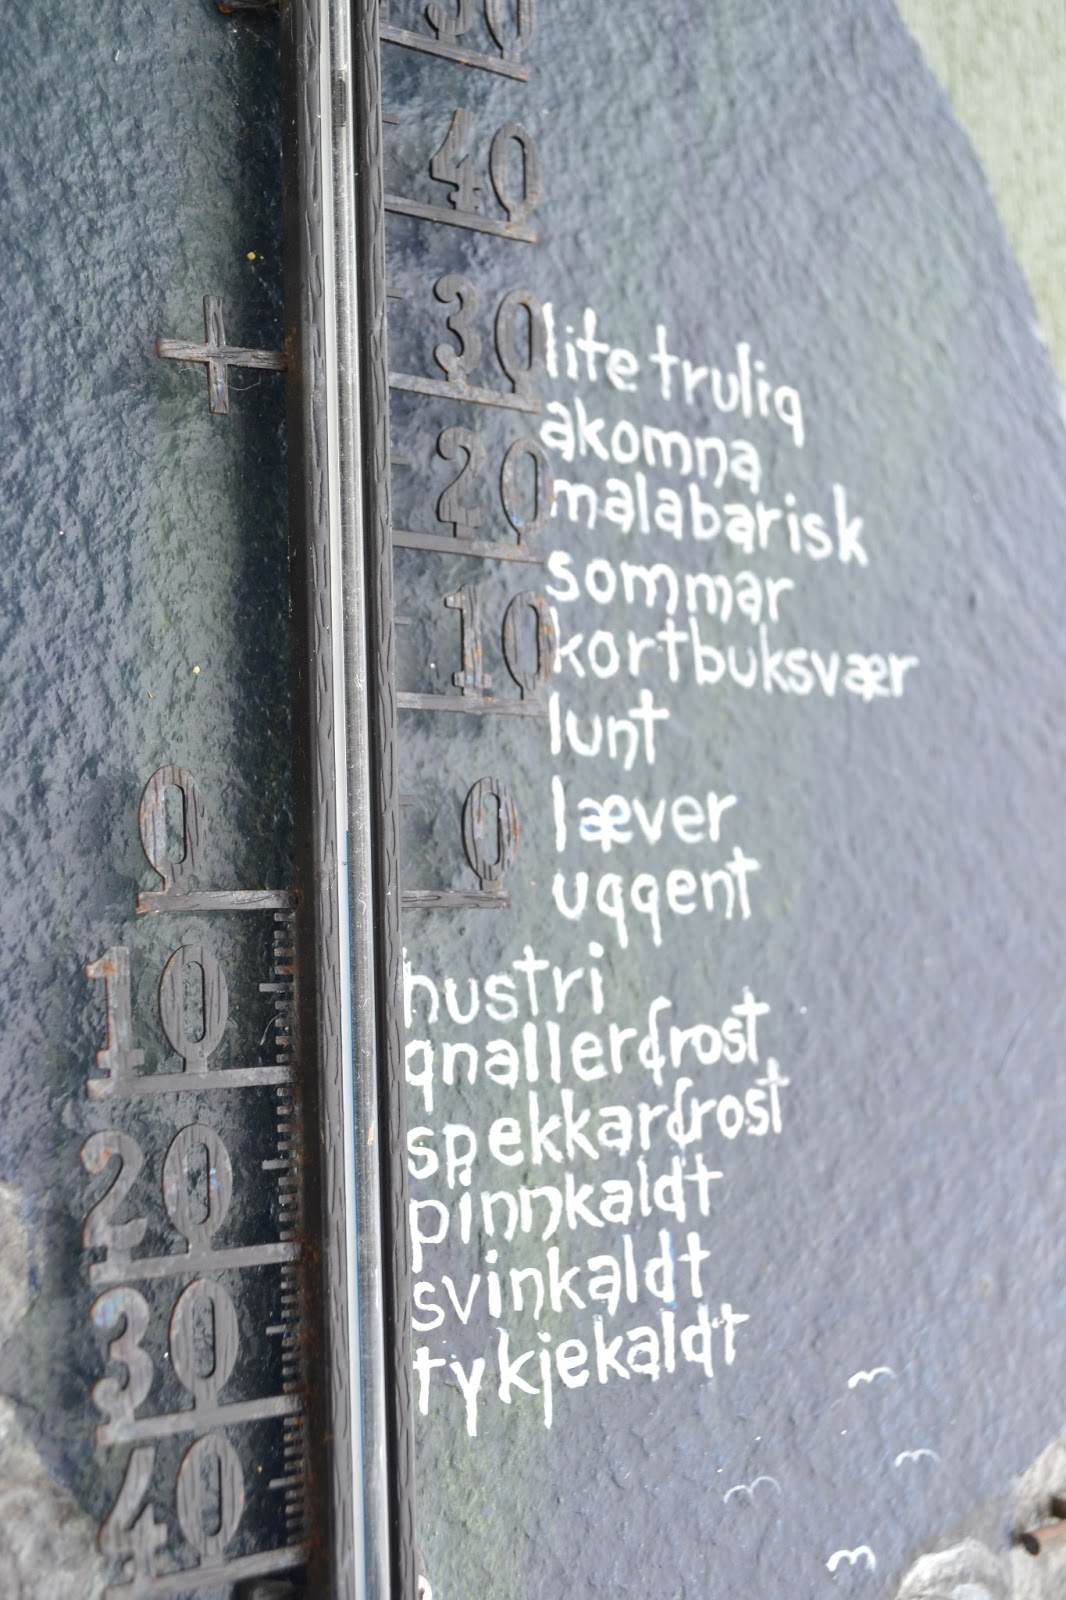 50
40
30
lite trulig
akomna
20
malabarisk
sommar
10
kortbuksvær
lunt
læver
0
0
uggent
hustri
gnallerfrost
10
spekkarfrost
pinnkaldt
20
svinkaldt
tykjekaldt
30
40